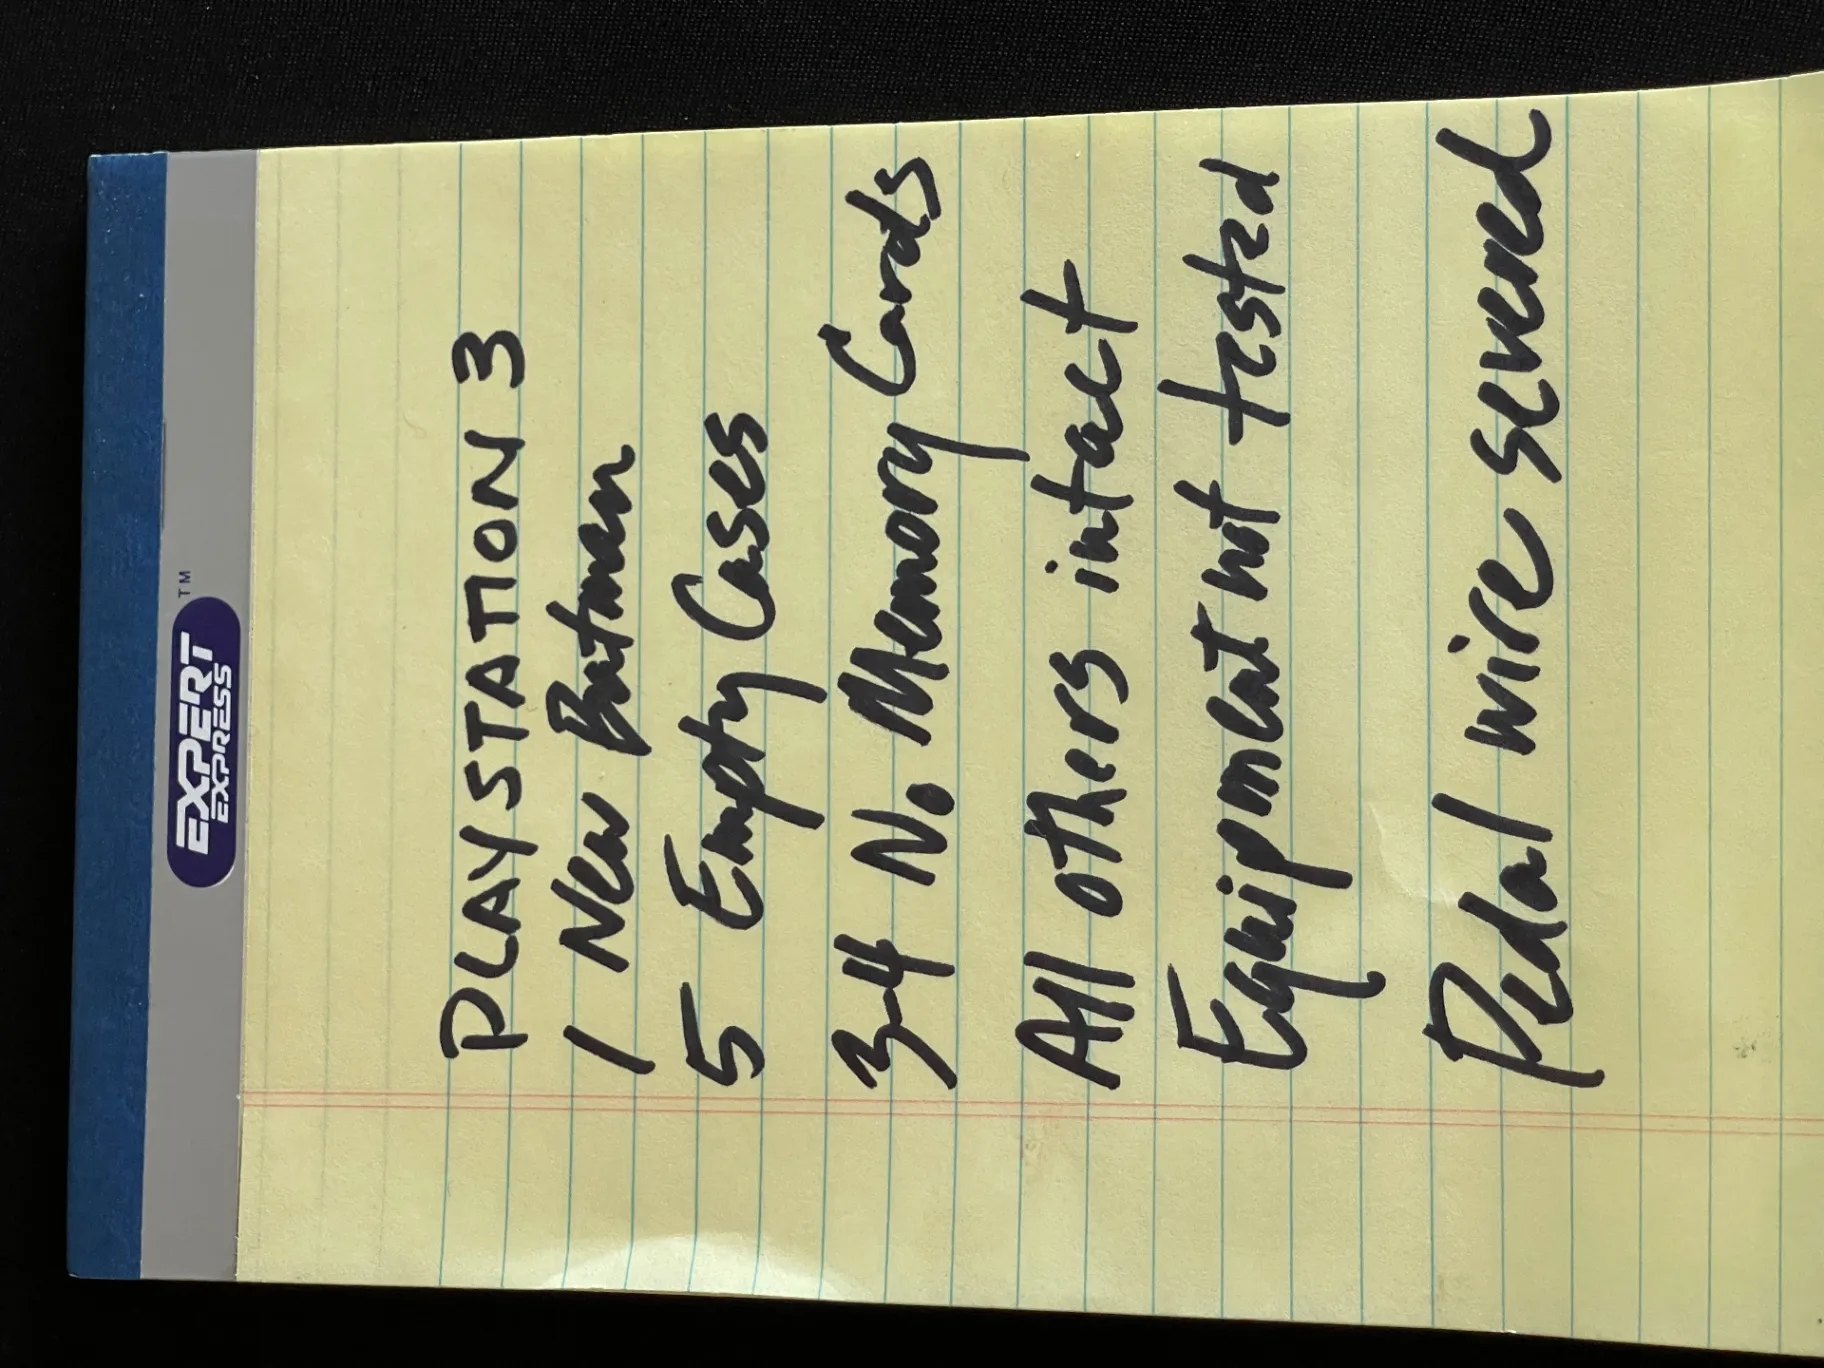 EXPERT™
EXPRESS
PLAYSTATION 3
1 New Batman
5 Empty Cases
34 No Memory Cards
All others intact
Equipment not tested
Pedal wire severed